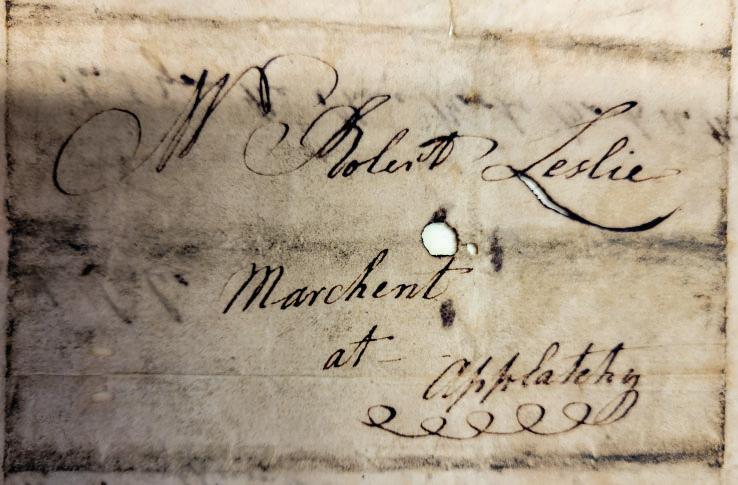 Mr Robert Leslie
Marchent
at
Applatchy